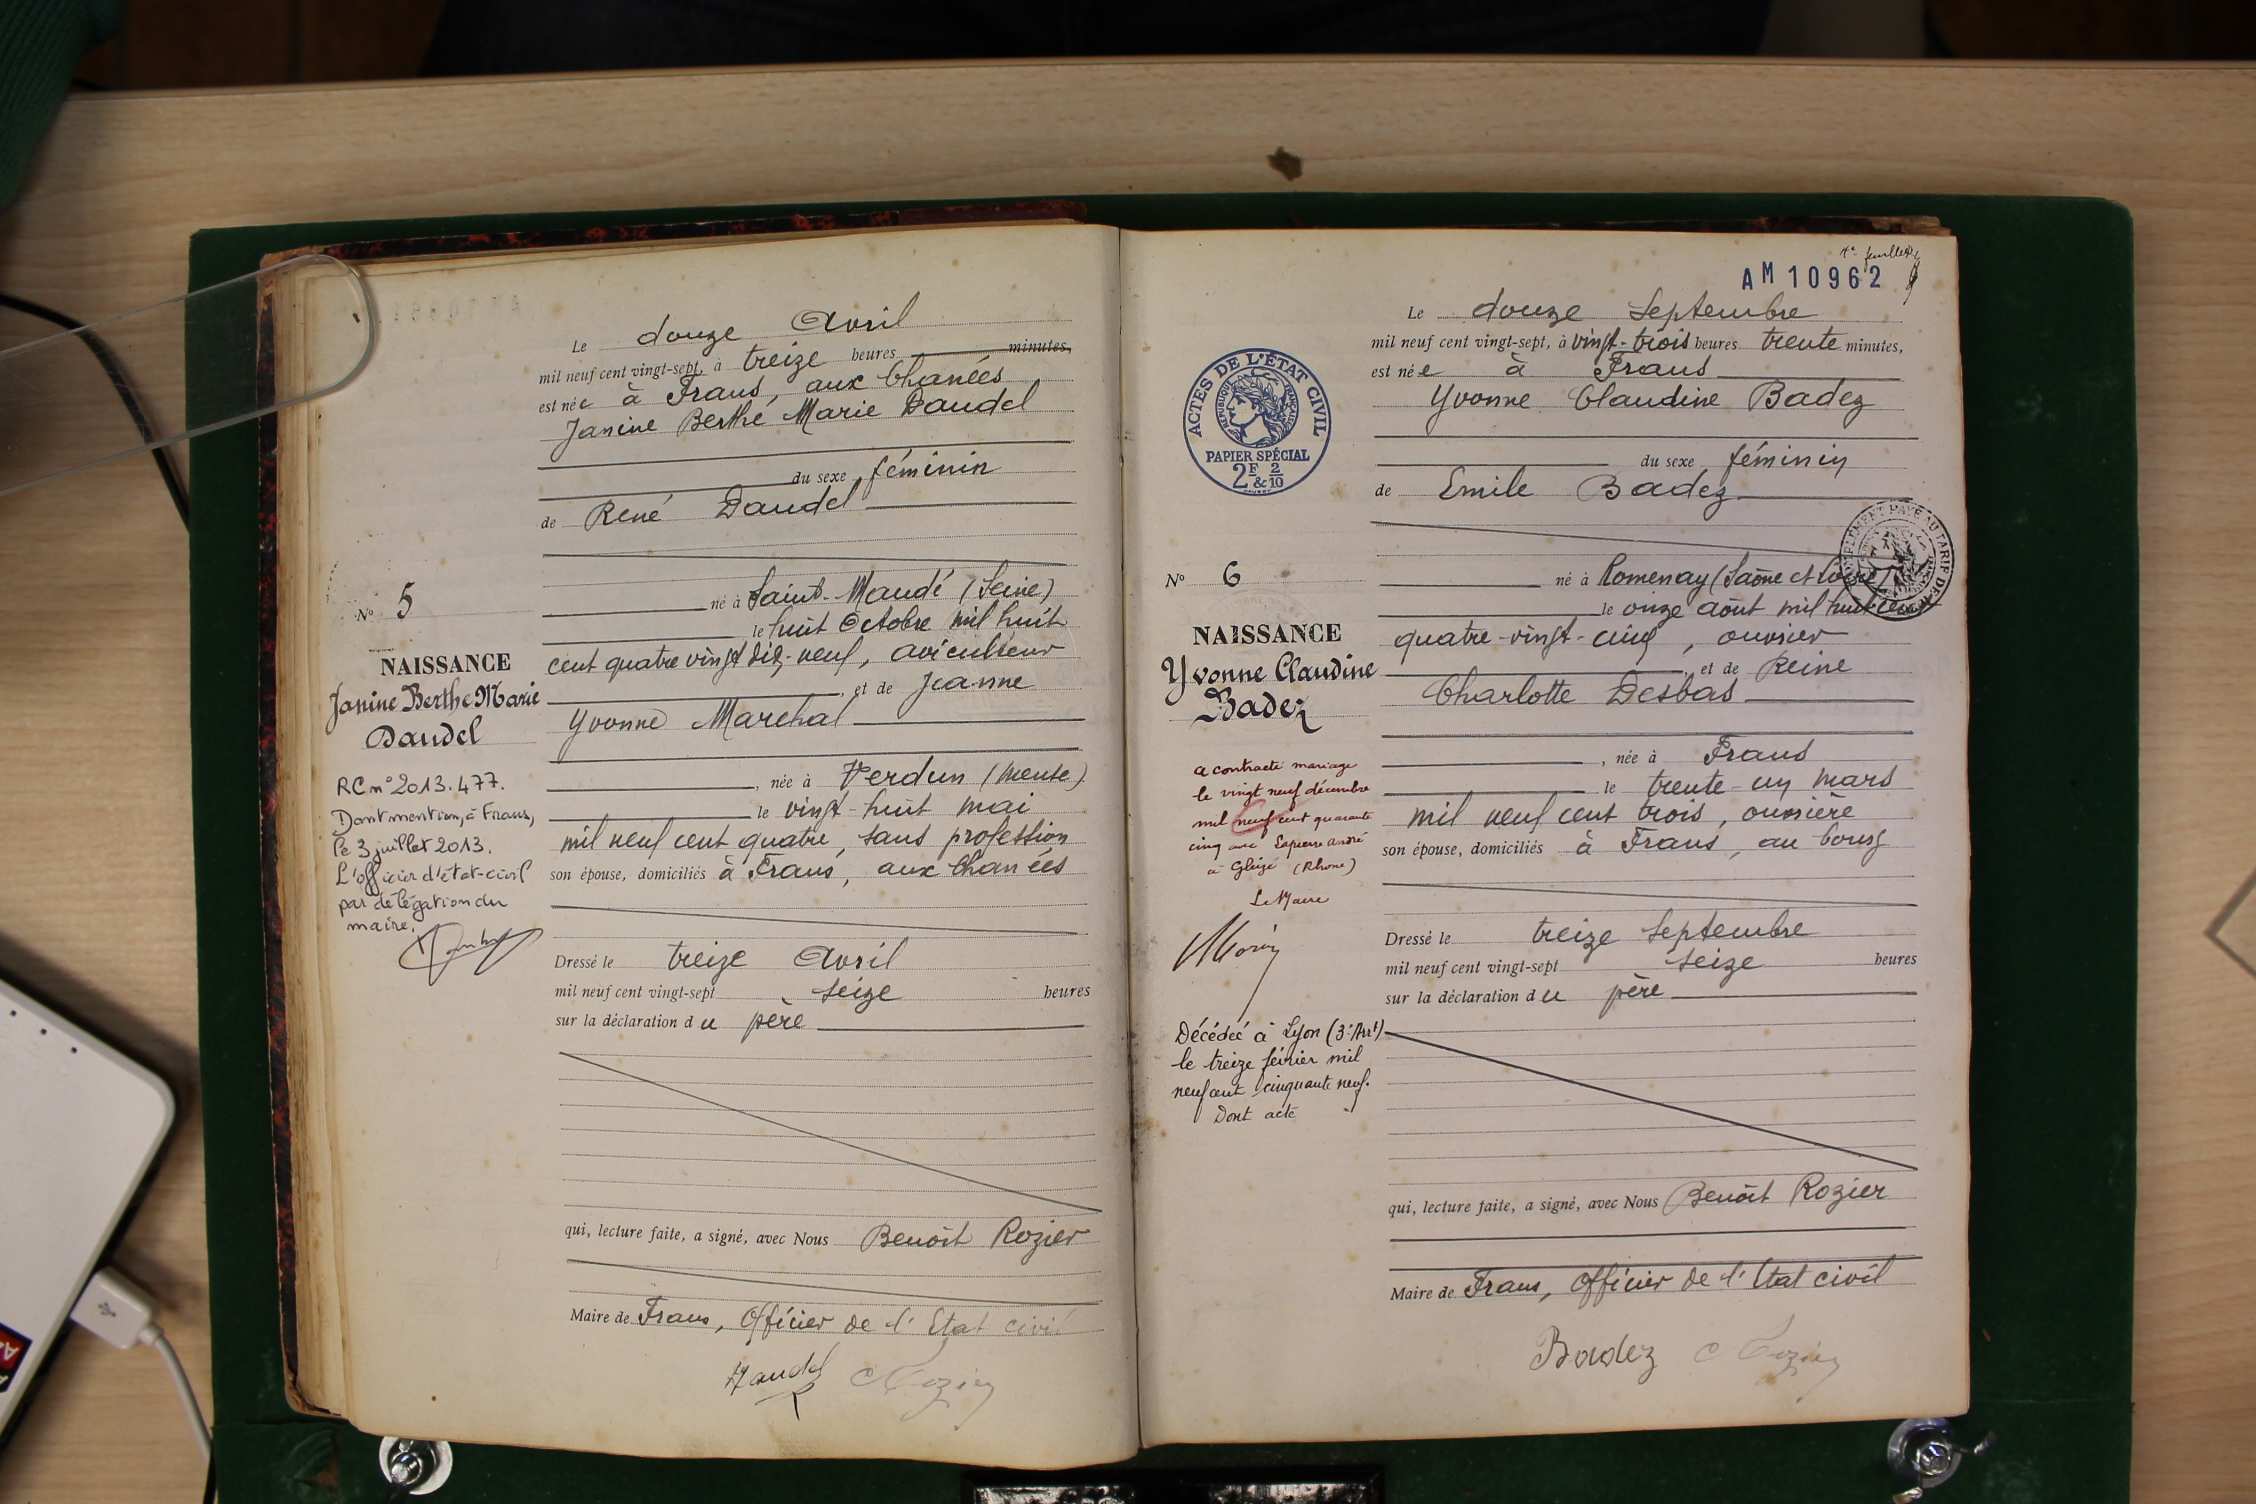 Le douze Avril
mil neuf cent vingt-sept, à treize heures minutes,
est née à Frans, aux Chanéés
Janine Berthe Marie Daudel
du sexe féminin
de René Daudel
né à Saint-Mandé (Seine)
le huit Octobre mil huit
cent quatre vingt dix-neuf, aviculteur
, et de Jeanne
Yvonne Marchal
, née à Verdun (Meuse)
le vingt-huit mai
mil neuf cent quatre, sans profession
son épouse, domiciliés à Frans, aux Chanéés
Dressé le treize Avril
mil neuf cent vingt-sept seize heures
sur la déclaration du père
qui, lecture faite, a signé, avec Nous Benoît Rozier
Maire de Frans, Officier de l'Etat civil
Daudel Rozier
N° 5
NAISSANCE
Janine Berthe Marie
Daudel
RC n° 2013.477.
Dont mention, à Frans,
le 3 juillet 2013.
L'officier d'état-civil
par délégation du
maire.
1er feuillet
AM 10962
Le douze Septembre
mil neuf cent vingt-sept, à vingt-trois heures trente minutes,
est née à Frans
Yvonne Claudine Badez
du sexe féminin
de Emile Badez
né à Romenay (Saône et Loire)
le onze août mil huit cent
quatre-vingt-cinq, ouvrier
, et de Reine
Charlotte Desbas
, née à Frans
le trente-un mars
mil neuf cent trois, ouvrière
son épouse, domiciliés à Frans, au bourg
Dressé le treize Septembre
mil neuf cent vingt-sept seize heures
sur la déclaration du père
qui, lecture faite, a signé, avec Nous Benoît Rozier
Maire de Frans, Officier de l'Etat civil
Badez Rozier
ACTES DE L'ETAT CIVIL
REPUBLIQUE FRANÇAISE
PAPIER SPÉCIAL
2F & 2/10
COMPLEMENT PAYE AU TARIF DE
N° 6
NAISSANCE
Yvonne Claudine
Badez
a contracté mariage
le vingt neuf décembre
mil neuf cent quarante
cinq avec Lapierre André
à Gleizé (Rhone)
Le Maire
Décédée à Lyon (3e Arrt)
le treize février mil
neuf cent cinquante neuf.
Dont acte